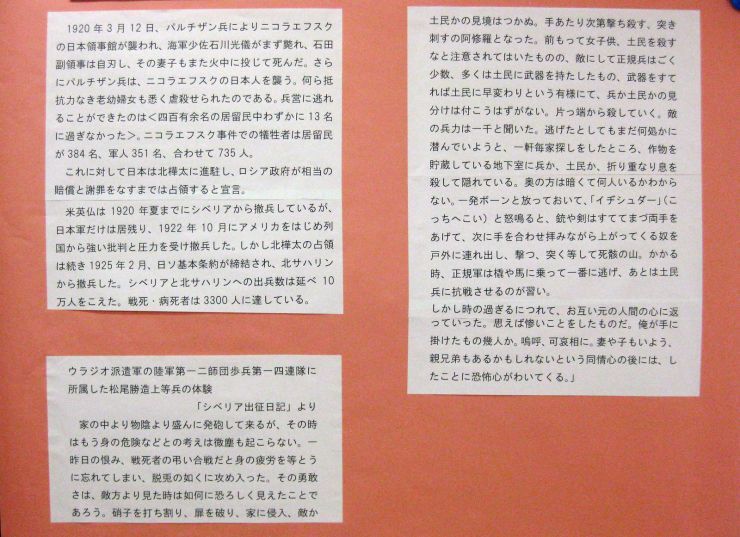 1920年3月12日、パルチザン兵によりニコラエフスク
の日本領事館が襲われ、海軍少佐石川光儀がまず斃れ、石田
副領事は自刃し、その妻子もまた火中に投じて死んだ。さら
にパルチザン兵は、ニコラエフスクの日本人を襲う。何ら抵
抗力なき老幼婦女も悉く虐殺せられたのである。兵営に逃れ
ることができたのは<四百有余名の居留民中わずかに13名
に過ぎなかった>。ニコラエフスク事件での犠牲者は居留民
が384名、軍人351名、合わせて735人。
これに対して日本は北樺太に進駐し、ロシア政府が相当の
賠償と謝罪をなすまでは占領すると宣言。
米英仏は1920年夏までにシベリアから撤兵しているが、
日本軍だけは居残り、1922年10月にアメリカをはじめ列
国から強い批判と圧力を受け撤兵した。しかし北樺太の占領
は続き1925年2月、日ソ基本条約が締結され、北サハリン
から撤兵した。シベリアと北サハリンへの出兵数は延べ10
万人をこえた。戦死・病死者は3300人に達している。
ウラジオ派遣軍の陸軍第一二師団歩兵第一四連隊に
所属した松尾勝造上等兵の体験
「シベリア出征日記」より
家の中より物陰より盛んに発砲して来るが、その時
はもう身の危険などとの考えは微塵も起こらない。一
昨日の恨み、戦死者の弔い合戦だと身の疲労を等とう
に忘れてしまい、脱兎の如くに攻め入った。その勇敢
さは、敵方より見た時は如何に恐ろしく見えたことで
あろう。硝子を打ち割り、扉を破り、家に侵入、敵か
土民かの見境はつかぬ。手あたり次第撃ち殺す、突き
刺すの阿修羅となった。前もって女子供、土民を殺す
なと注意されてはいたものの、敵にして正規兵はごく
少数、多くは土民に武器を持たしたもの、武器をすて
れば土民に早変わりという有様にて、兵か土民かの見
分けは付こうはずがない。片っ端から殺していく。敵
の兵力は一千と聞いた。逃げたとしてもまだ何処かに
潜んでいようと、一軒毎家探しをしたところ、作物を
貯蔵している地下室に兵か、土民か、折り重なり息を
殺して隠れている。奥の方は暗くて何人いるかわから
ない。一発ボーンと放っておいて、「イヂシュダー」(こ
っちへこい)と怒鳴ると、銃や剣はすててまづ両手を
あげて、次に手を合わせ拝みながら上がってくる奴を
戸外に連れ出し、撃つ、突く等して死骸の山。かかる
時、正規軍は橇や馬に乗って一番に逃げ、あとは土民
兵に抗戦させるのが習い。
しかし時の過ぎるにつれて、お互い元の人間の心に返
っていった。思えば惨いことをしたものだ。俺が手に
掛けたもの幾人か。嗚呼、可哀相に。妻や子もいよう、
親兄弟もあるかもしれないという同情心の後には、し
たことに恐怖心がわいてくる。」